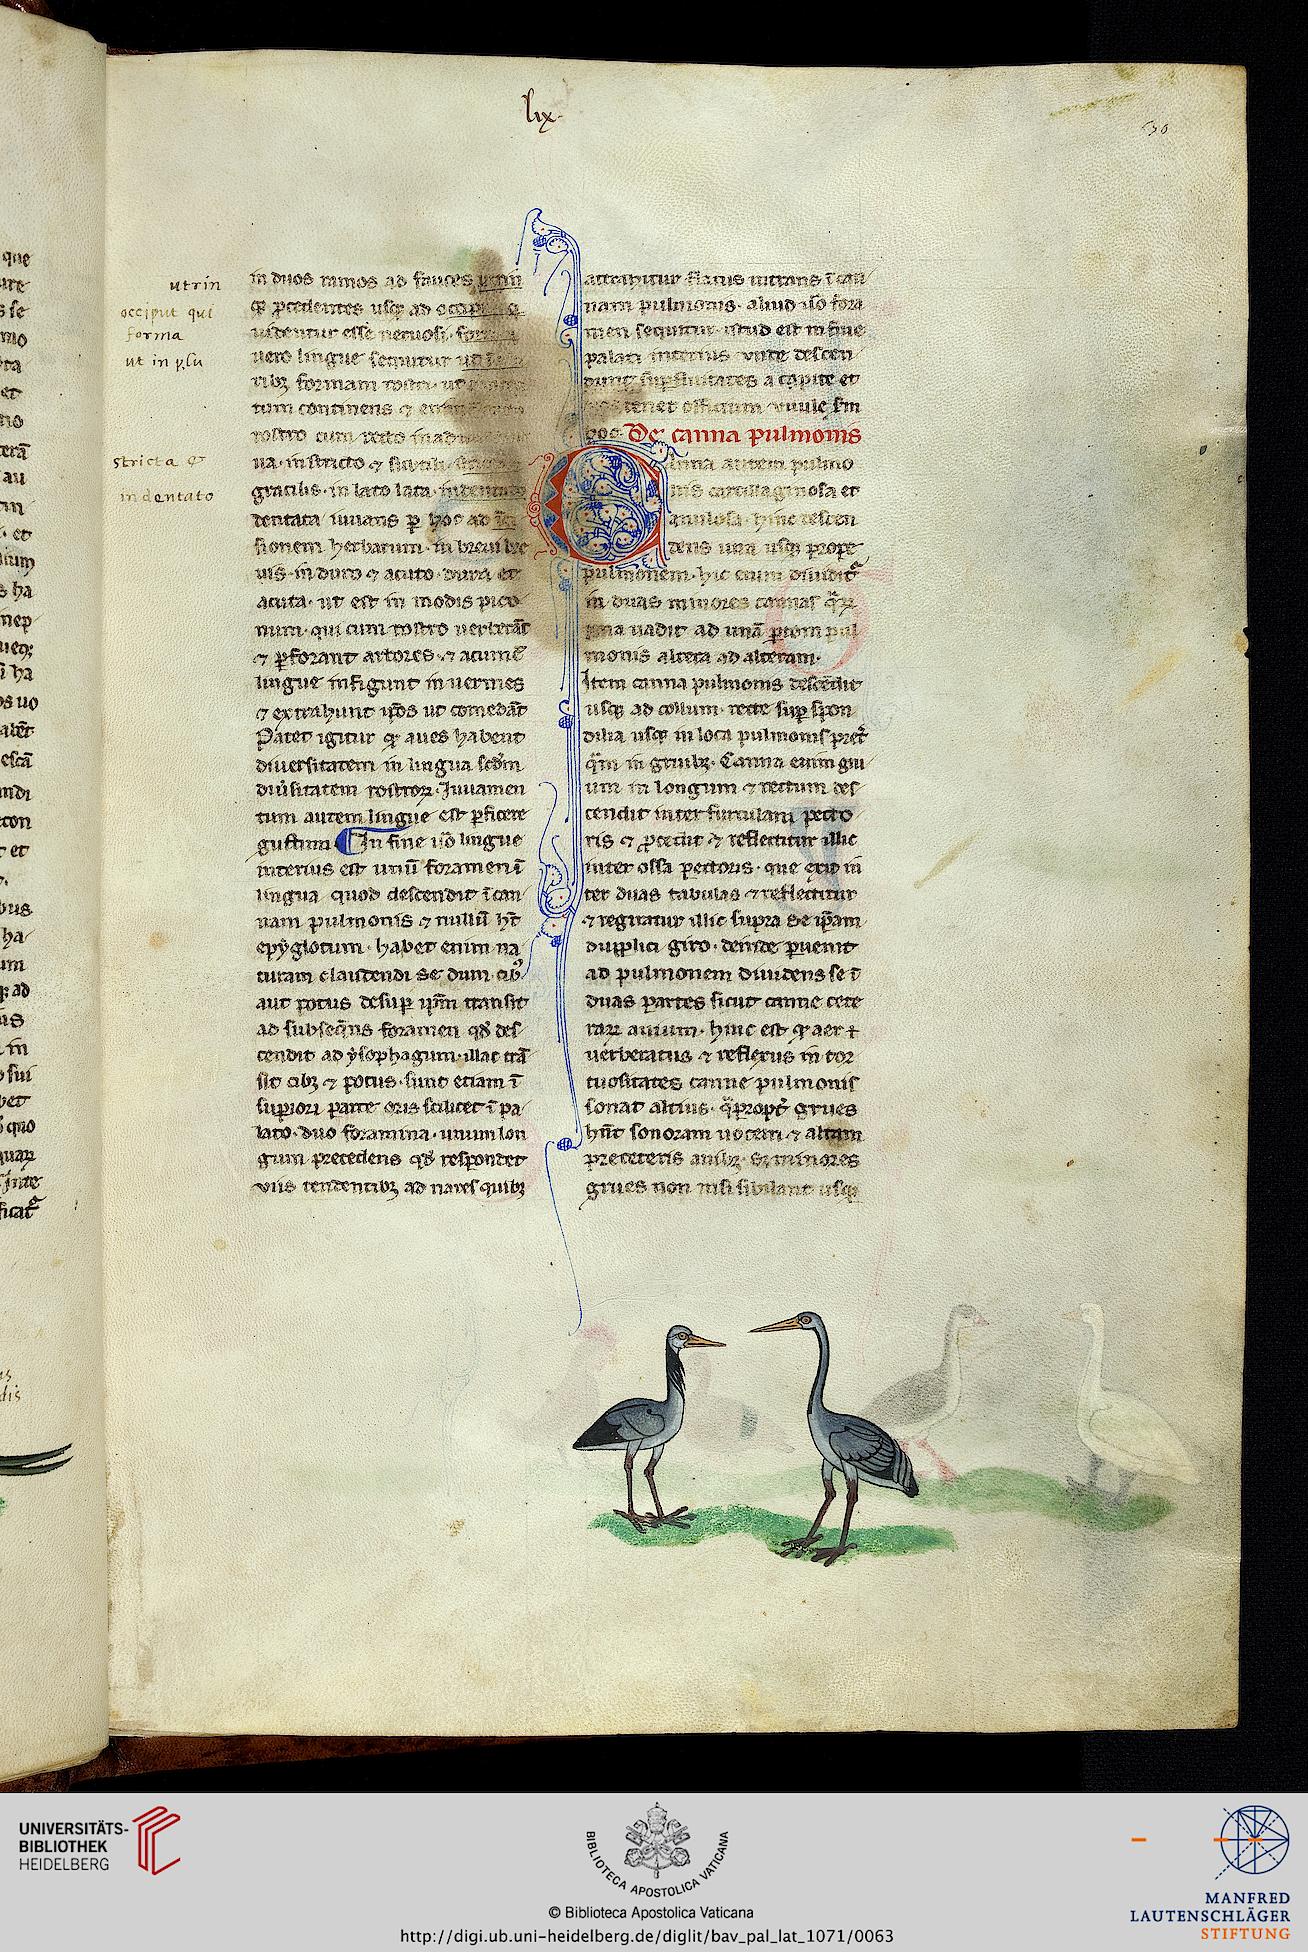 lix
in duos ramos ad fauces utrin
q̄ p̄cedentes usq; ad occiput q̄
uidentur esse neruosi. forma
uero lingue sequitur
rib; formam rostri. ut
tum continens ⁊
rostro cum recto
ua. in stricto ⁊ subtili.
gracilis. in lato lata. indentato
dentata iuuans ꝑ hoc ad
sionem herbarum. in breui bre
uis. in duro ⁊ acuto. dura et
acuta. ut est in modis pico
num. qui cum rostro uerberāt
⁊ ꝑforant arbores. ⁊ acumē
lingue infigunt in uermes
⁊ extrahunt ip̄os ut comedāt
Patet igitur qȝ aues habent
diuersitatem in lingua sc̄dm
diu͛sitatem rostroꝝ. Iuuamen
tum autem lingue est ꝑficere
gustum. In fine u͛o lingue
interius est unū foramen ī
lingua quod descendit ī can
nam pulmonis ⁊ nullū hȳt
epyglotum. habet enim na
turam claudendi se dum cib⁹
aut potus desuꝑ ip̄m transit
ad subseq̄ns foramen qd̄ des
cendit ad ysophagum. illac trā
sit cib; ⁊ potus. sunt etiam ī
suꝑiori parte oris scilicet ī pa
lato. duo foramina. unum lon
gum precedens qd̄ respondet
uiis tendentib; ad nares quib;
attrahitur flatus intrans ī can
nam pulmonis. aliud u͛o fora
men sequitur. istud est in fine
palati interius unde descen
dunt suꝑfluitates a capite et
hos tenet officium uuule
pos. De canna pulmonis
Canna autem pulmo
nis cartillaginosa et
anulosa. hinc descen
dens una usq; prope
pulmonem. hic enim diuidit᷑
in duas minores cannas q̄ꝝ
una uadit ad unā ꝑtem pul
monis altera ad alteram.
Item canna pulmonis descēdit
usq; ad collum. recte suꝑ spon
dilia usq; in loca pulmonis pret͛
q̄m in gruib;. Canna enim gru
um in longum ⁊ rectum des
cendit inter furculam pecto
ris ⁊ ꝓcedit ⁊ reflectitur illic
inter ossa pectoris. que est in
ter duas tabulas ⁊ reflectitur
⁊ regiratur illic supra se ip̄am
dupplici giro. deinde ꝑuenit
ad pulmonem diuidens se ī
duas partes sicut canne cete
raꝝ auium. hinc est qȝ aer
uerberatus ⁊ reflexus in tor
tuositates canne pulmonis
sonat altius. q̄propt͛ grues
hn̄t sonoram uocem ⁊ altam
pre ceteris auib;. s; minores
grues non nisi sibilant usq;
utrin
occiput qui
forma
ut in plu
stricta &
indentato
UNIVERSITÄTS-
BIBLIOTHEK
HEIDELBERG
BIBLIOTECA APOSTOLICA VATICANA
© Biblioteca Apostolica Vaticana
http://digi.ub.uni-heidelberg.de/diglit/bav_pal_lat_1071/0063
MANFRED
LAUTENSCHLÄGER
STIFTUNG